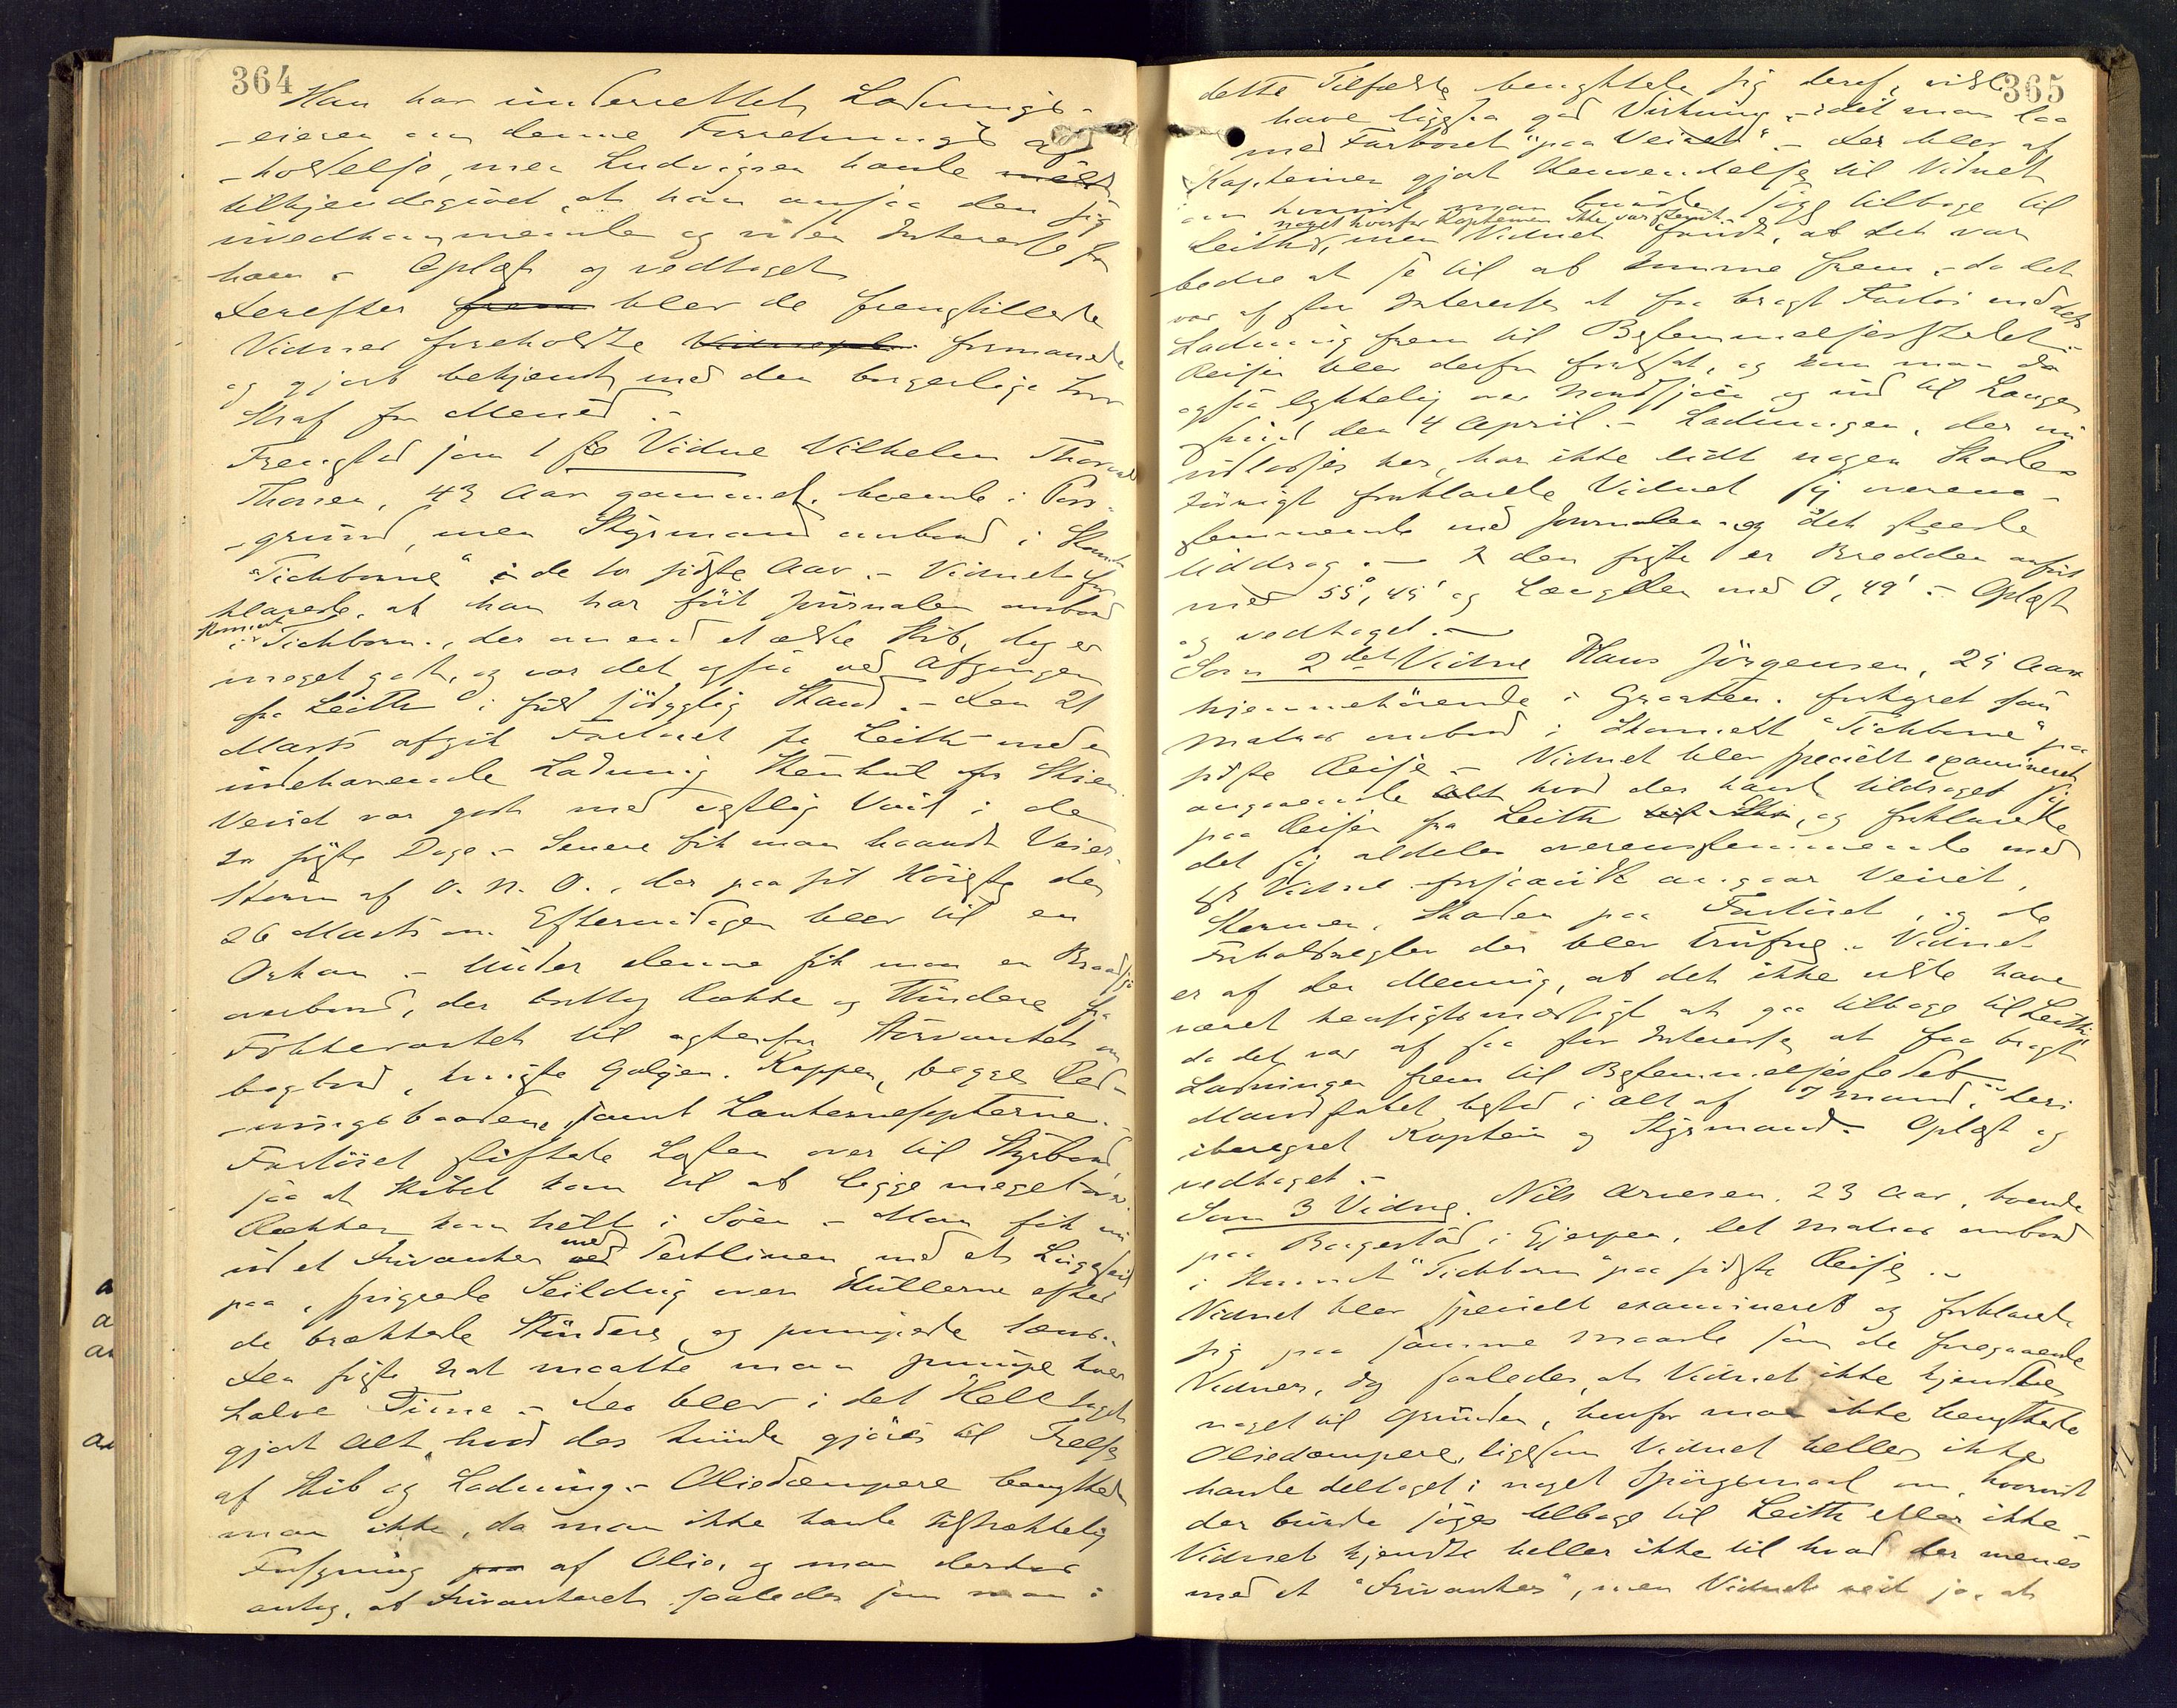 364
Han har underrettet Ladnings-
-eieren om denne Forretnings af
-holdelse, men Ludvigsen havde
tilkjendegivet, at han ansaa den sig
uvedkommende og uden Interesse for
ham. - Oplæst og vedtaget
Derefter blev de fremstillede
Vidner foreholdte formanede
og gjort bekjendt med den borgerlige Lovs
Straf for Mened. -
Fremstod som 1ste Vidne Vilhelm Thorvald
Thorsen, 43 Aar gammel, boende i Pors-
-grund, men Styrmand ombord i Skonnert
"Tichborne" i de to sidste Aar. - Vidnet for-
klarede, at han har ført Journalen ombord
i Skonnert Tichborn., der om end et ældre Skib, dog er
meget godt, og var det ogsaa ved Afgangen
fra Leith i fuld sjødygtig Stand. - Den 21
Marts afgik Fartøiet fra Leith med en
indehavende Ladning Stenkul for Skien
Veiret var godt med vestlig Vind i de
to første Dage. - Senere fik man haardt Veir,
Storm af O. N. O., der paa sit Høieste den
26 Marts om Eftermidagen blev til en
Orkan. - Under denne fik man en Braadsjø
ombord, der knækket Række og Støndere fra
Fokkevantet til agtenfor Storvantet om
bagbord, knuste Galgen, Kappen, begge Red-
-ningsbaadene samt Lanternesrpterne. -
Fartøiet skiftede Lasten over til Styrbord,
saa at Skibet kom til at ligge meget over
Rækken kom helt i Søen - Man fik nu
ud et Drivanker med Pertlinen med et Lugeseil
paa, spigrede Seildug over Hullerne efter
de brækkede Støndere, og pumpede læns.
Den første Nat maatte man pumpe hver
halve Time. - Der blev i det Hele taget
gjort Alt, hvad der kunde gjøres til Frelse
af Skib og Ladning. - Oliedæmpere benyttede
man ikke, da man ikke havde tilstrækkelig
Forsyning af Olie, og man derhos
antog, at Drivankeret saaledes som man i
365
dette Tilfælde benyttede sig deraf, vilde
have ligesaa god Virkning - idet man laa
med Fartøiet "paa Veiret". - Der blev af
Kapteinen gjort Henvendelse til Vidnet
om hvorvidt man burde søge tilbage til
noget hvorfor Kapteinen ikke var stemt. -
Leith, men Vidnet fandt, at det var
bedre at se til at komme frem, - da det
var af stor Interesse at faa bragt Fartøi med dets
Ladning frem til Bestemmelsesstedet. -
Reisen blev derfor fortsat, og kom man da
ogsaa lykkelig over Nordsjøen og ind til Lange-
sund den 4 April. - Ladningen, der nu
udlosses her, har ikke lidt nogen Skade.
Forøvrigt forklarede Vidnet sig overens-
stemmende med Journalen og det skeede
Uddrag. - den første er Bredden anført
med 55°, 45' og Længden med 0, 49'. - Oplæst
og vedtaget. -
Som 2det Vidne Hans Jörgensen, 25 Aar
hjemmehörende i Graasten. forhyret som
Matros ombord i Skonnert "Tichborne" paa
sidste Reise. - Vidnet blev specielt examineret
angaaende hvad der havde tildraget sig
paa Reisen fra Leith, og forklarede
det sig aldeles overensstemmende med
1ste Vidne forsaavidt angaar Veiret,
Stormen, Skaden paa Fartöiet, og de
Forholdsregler der blev trufne. - Vidnet
er af den Mening, at det ikke vilde have
været hensigtsmæssigt at gaa tilbage til Leith,
da det var af saa stor Interesse at faa bragt
Ladningen frem til Bestemmelsesstedet. -
Mandskabet bestod i alt af 7 mand, deri
iberegnet Kaptein og Styrmand. - Oplæst og
vedtaget. -
Som 3 Vidne. Nils Arnesen. 23 Aar, boende
paa Borgestad i Gjerpen, let Matros ombord
i Skonnert "Tichborn" paa sidste Reise. -
Vidnet blev specielt examineret og forklarede
sig paa samme Maade som de foregaaende
Vidner, dog saaledes, at Vidnet ikke kjendte
noget til Grunden, hvorfor man ikke benyttede
Oliedæmpere, ligesom Vidnet heller ikke
havde deltaget i noget Spörgsmaal om, hvorvidt
der burde söges tilbage til Leith eller ikke. -
Vidnet kjendte heller ikke til hvad der menes
med et "Drivanker", men Vidnet ved jo, at